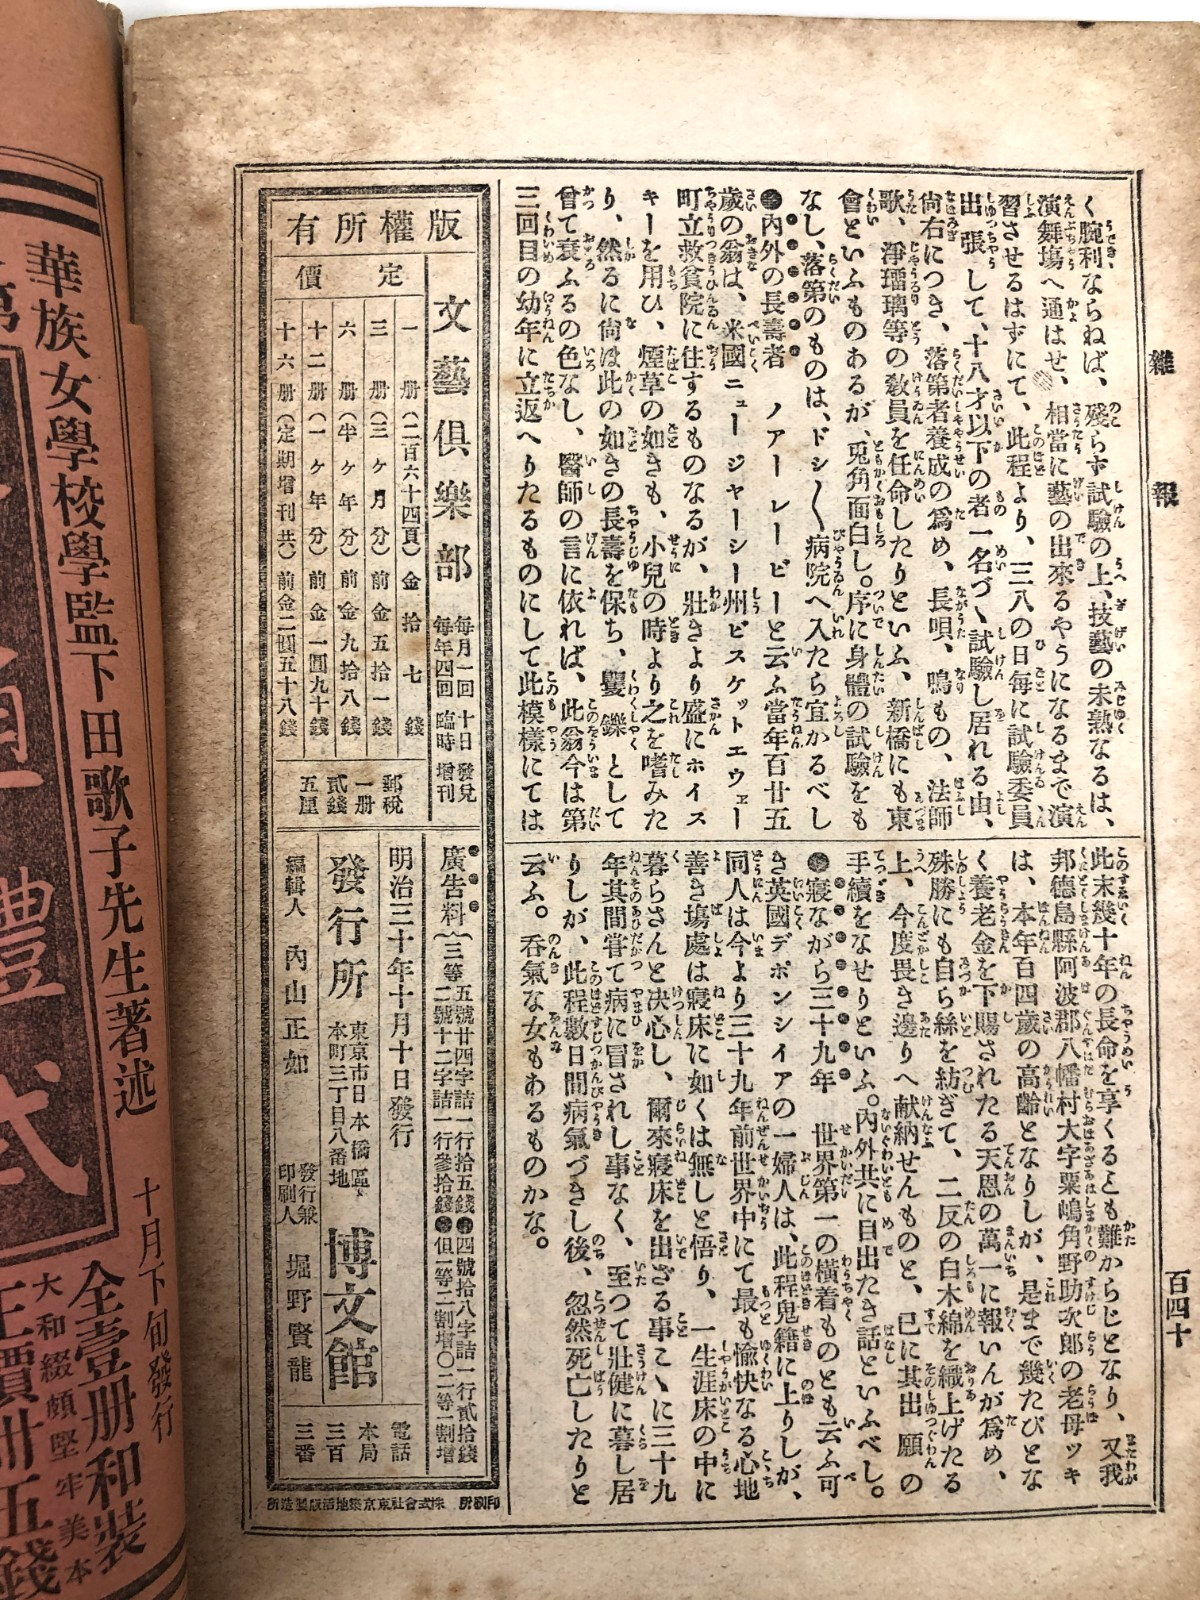 雜報
百四十
く腕利ならねば、殘らず試驗の上、技藝の未熟なるは、
演舞塲へ通はせ、相當に藝の出來るやうになるまで演
習させるはずにて、此程より、三八の日每に試驗委員
出張して、十八才以下の者一名づゝ試驗し居れる由、
尙右につき、落第者養成の爲め、長唄、鳴もの、法師
歌、淨瑠璃等の敎員を任命したりといふ、新橋にも東
會といふものあるが、兎角面白し。序に身體の試驗をも
なし、落第のものは、ドシ〱病院へ入たら宜かるべし
●內外の長壽者　ノアーレービーと云ふ當年百廿五
歲の翁は、米國ニュージャーシー州ビスケットエウェー
町立救貧院に住するものなるが、壯きより盛にホイス
キーを用ひ、煙草の如きも、小兒の時より之を嗜みた
り、然るに尙ほ此の如きの長壽を保ち、矍鑠として
曾て衰ふるの色なし、醫師の言に依れば、此翁今は第
三回目の幼年に立返へりたるものにして此模樣にては
此末幾十年の長命を享くるとも難からじとなり、又我
邦德島縣阿波郡八幡村大字粟嶋角野助次郞の老母ツキ
は、本年百四歲の高齡となりしが、是まで幾たびとな
く養老金を下賜されたる天恩の萬一に報いんが爲め、
殊勝にも自ら絲を紡ぎて、二反の白木綿を織上げたる
上、今度畏き邊りへ献納せんものと、已に其出願の
手續をなせりといふ。內外共に目出たき話といふべし。
●寢ながら三十九年　世界第一の橫着ものとも云ふ可
き英國デボンシイアの一婦人は、此程鬼籍に上りしが、
同人は今より三十九年前世界中にて最も愉快なる心地
善き塲處は寢床に如くは無しと悟り、一生涯床の中に
暮らさんと决心し、爾來寢床を出ざる事こゝに三十九
年其間嘗て病に冒されし事なく、至つて壯健に暮し居
りしが、此程數日間病氣づきし後、忽然死亡したりと
云ふ。呑氣な女もあるものかな。
版權所有
文藝俱樂部
每月一回十日發兌
每年四回臨時增刊
定價
一册（二百六十四頁）金拾七錢
三册（三ヶ月分）前金五拾一錢
六册（半ヶ年分）前金九拾八錢
十二册（一ヶ年分）前金一圓九十錢
十六册（定期增刊共）前金二圓五十八錢
郵稅
一册
貳錢
五厘
廣吿料
五號廿四字詰一行拾五錢●四號拾八字詰一行貳拾錢
三等二號十二字詰一行參拾錢●但一等二割增〇二等一割增
明治三十年十月十日發行
發行所
東京市日本橋區
本町三丁目八番地
博文館
電話
本局
三百
三番
編輯人　內山正如
發行兼
印刷人　堀野賢龍
印刷所　株式會社東京築地活版製造所
華族女學校學監下田歌子先生著述
十月下旬發行
禮式
全壹册和裝
大和綴頗堅牢美本
正價卅五錢